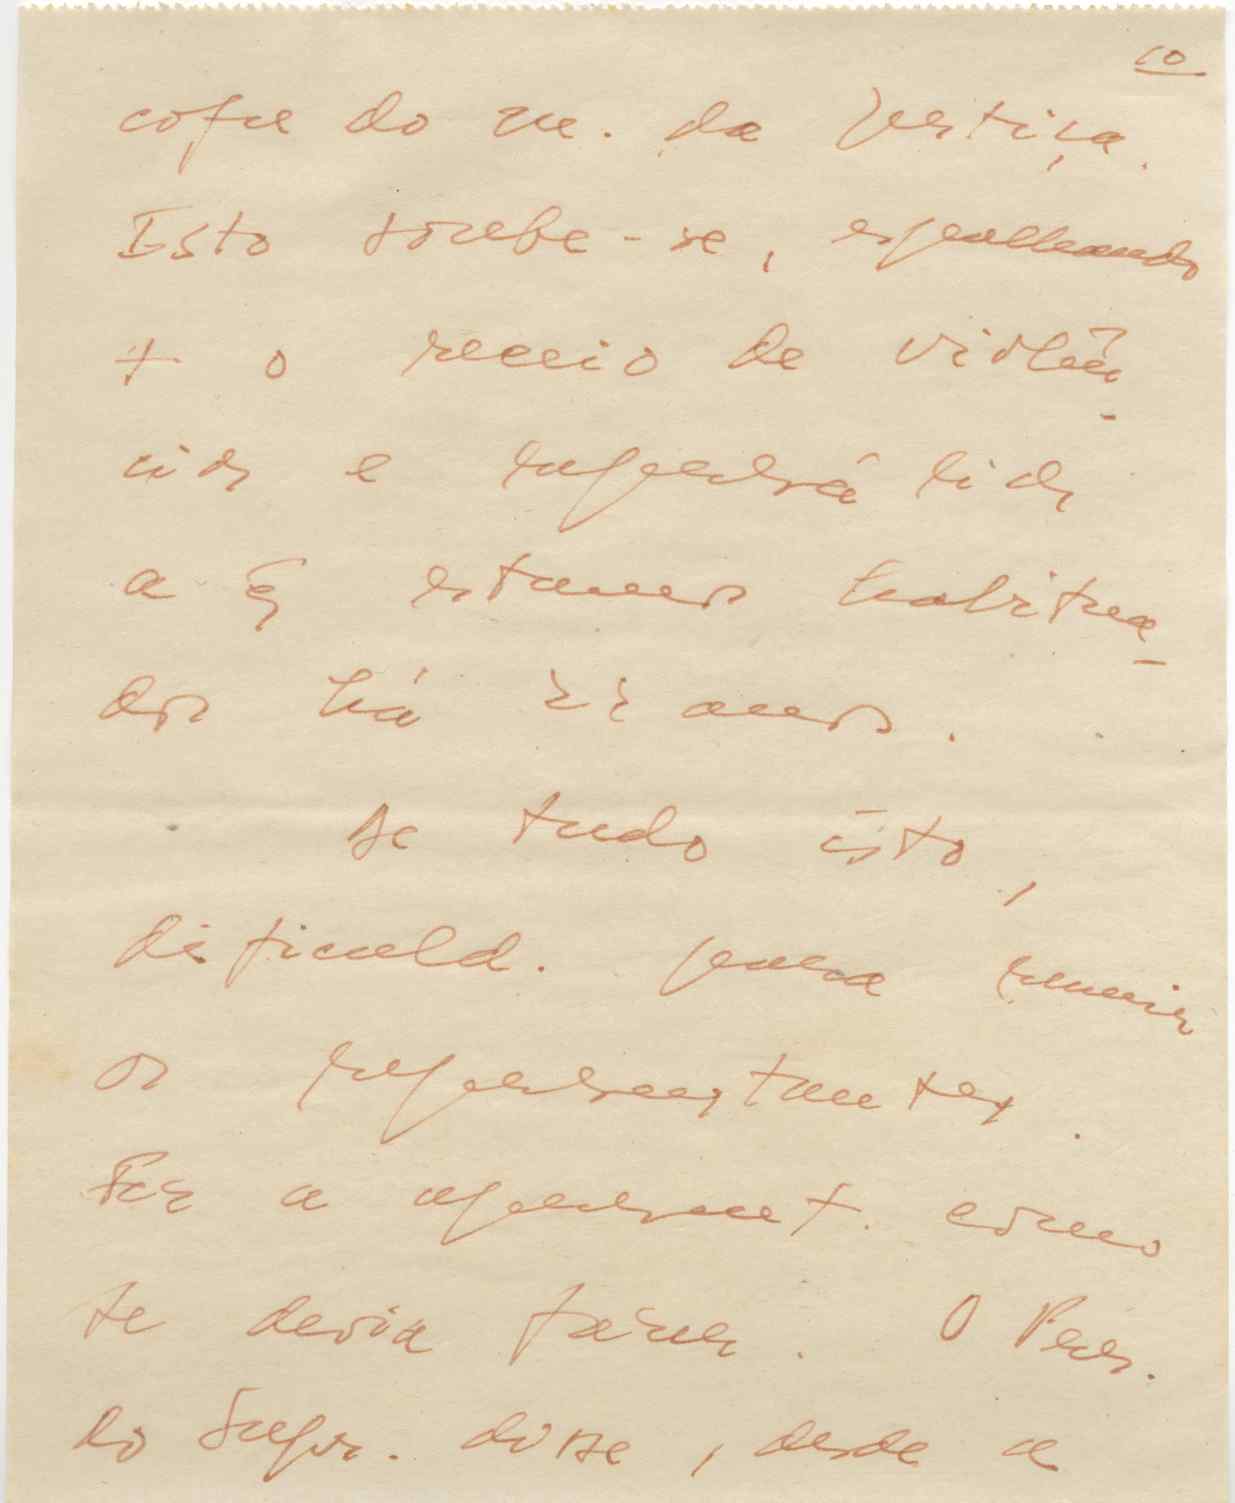 10
cofre do m. da Justiça.
Isto soube-se, espalhando
+ o receio de violên-
cias e represálias
a q̃ estamos habitua-
dos há 22 anos.
De tudo isto,
dificuld. para reunir
os representantes.
Fez a apresent. como
se devia fazer. O Pres.
do Supr. disse, desde a